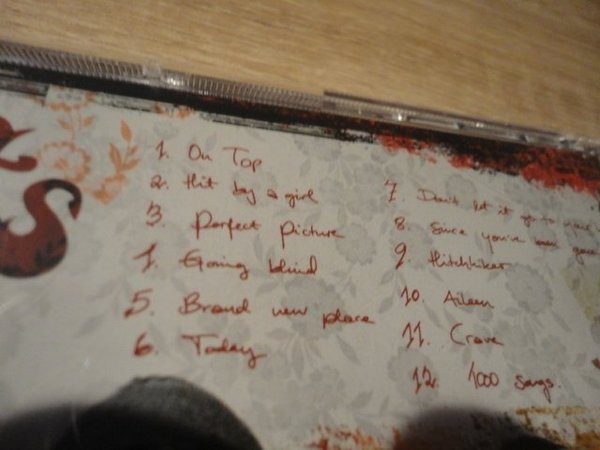 1. On Top
2. Hit by a girl
3. Perfect Picture
4. Going blind
5. Brand new place
6. Today
7. Don't let it go to your
8. Since you've been gone
9. Hitchhiker
10. Aileen
11. Crave
12. 1000 songs.